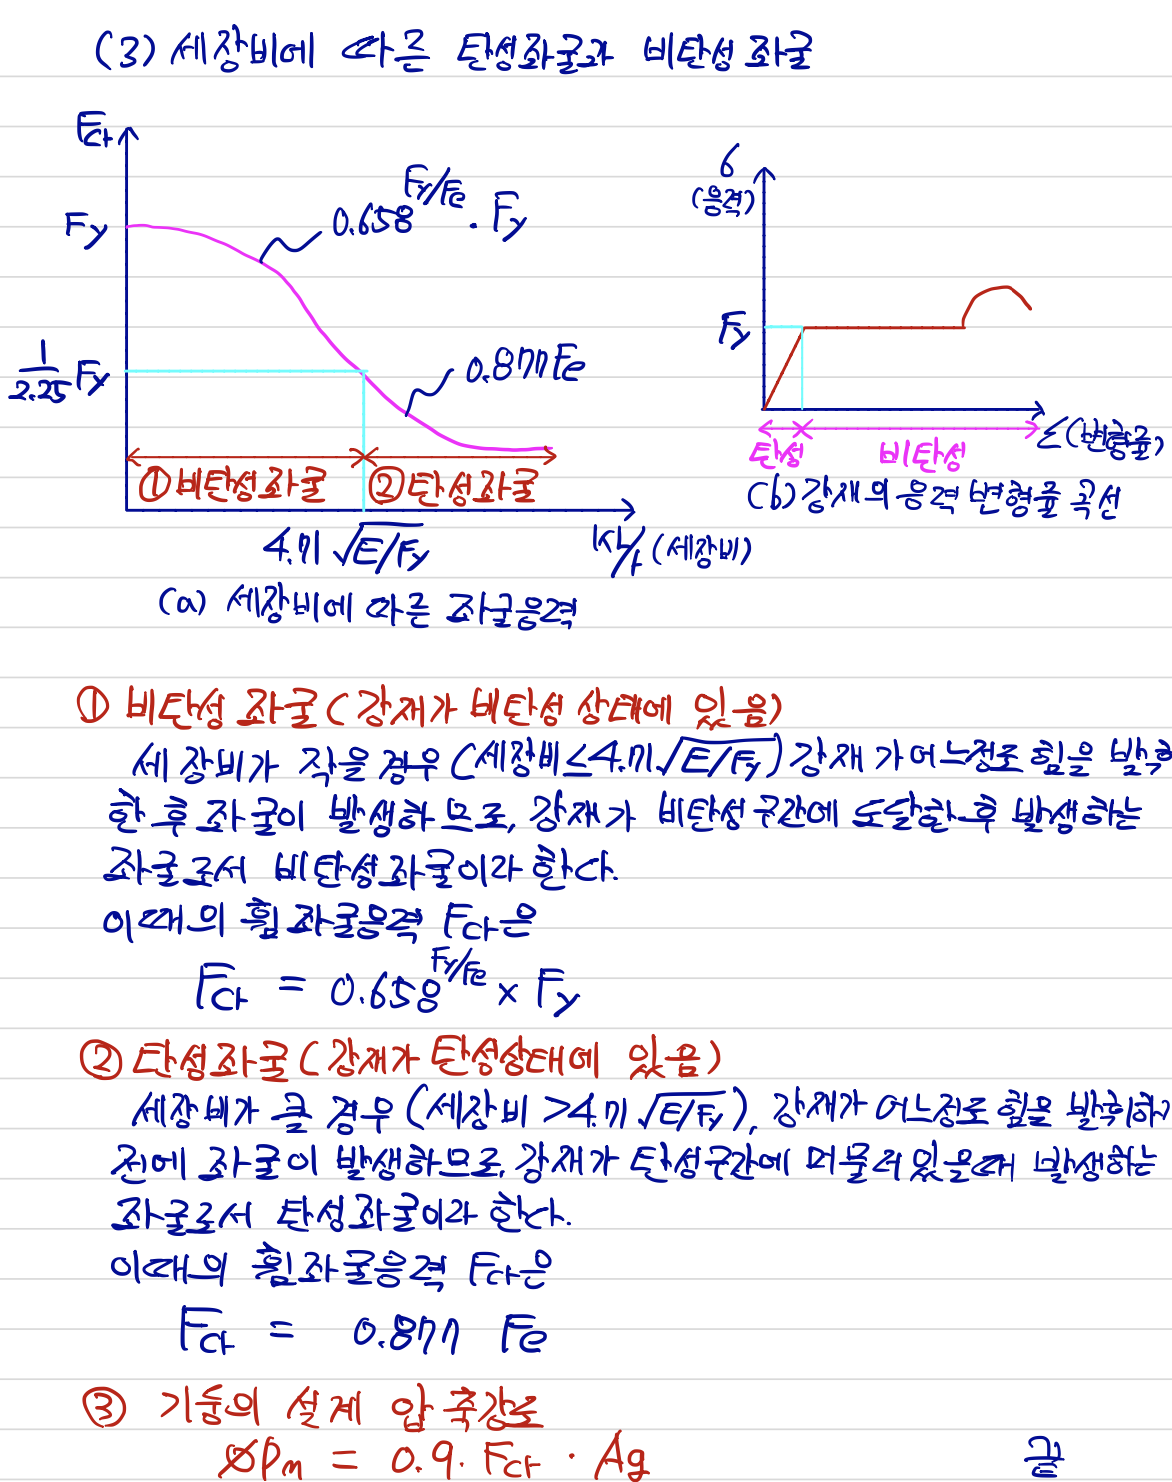 (3) 세장비에 따른 탄성좌굴과 비탄성 좌굴
Fcr
Fy
0.658^Fy/Fe · Fy
1/2.25 Fy
0.877Fe
① 비탄성좌굴
② 탄성좌굴
4.71 √E/Fy
KL/r (세장비)
(a) 세장비에 따른 좌굴응력
σ
(응력)
Fy
ε(변형률)
탄성
비탄성
(b) 강재의 응력 변형률 곡선
① 비탄성 좌굴 (강재가 비탄성 상태에 있음)
세장비가 작을 경우 (세장비≤4.71√E/Fy) 강재가 어느정도 힘을 발휘
한 후 좌굴이 발생하므로, 강재가 비탄성 구간에 도달한 후 발생하는
좌굴로서 비탄성좌굴이라 한다.
이때의 휨좌굴응력 Fcr은
Fcr = 0.658^Fy/Fe × Fy
② 탄성좌굴 (강재가 탄성상태에 있음)
세장비가 클 경우 (세장비 >4.71 √E/Fy), 강재가 어느정도 힘을 발휘하기
전에 좌굴이 발생하므로, 강재가 탄성구간에 머물러 있을때 발생하는
좌굴로서 탄성좌굴이라 한다.
이때의 휨좌굴응력 Fcr은
Fcr = 0.877 Fe
③ 기둥의 설계 압축강도
øPn = 0.9 · Fcr · Ag
끝